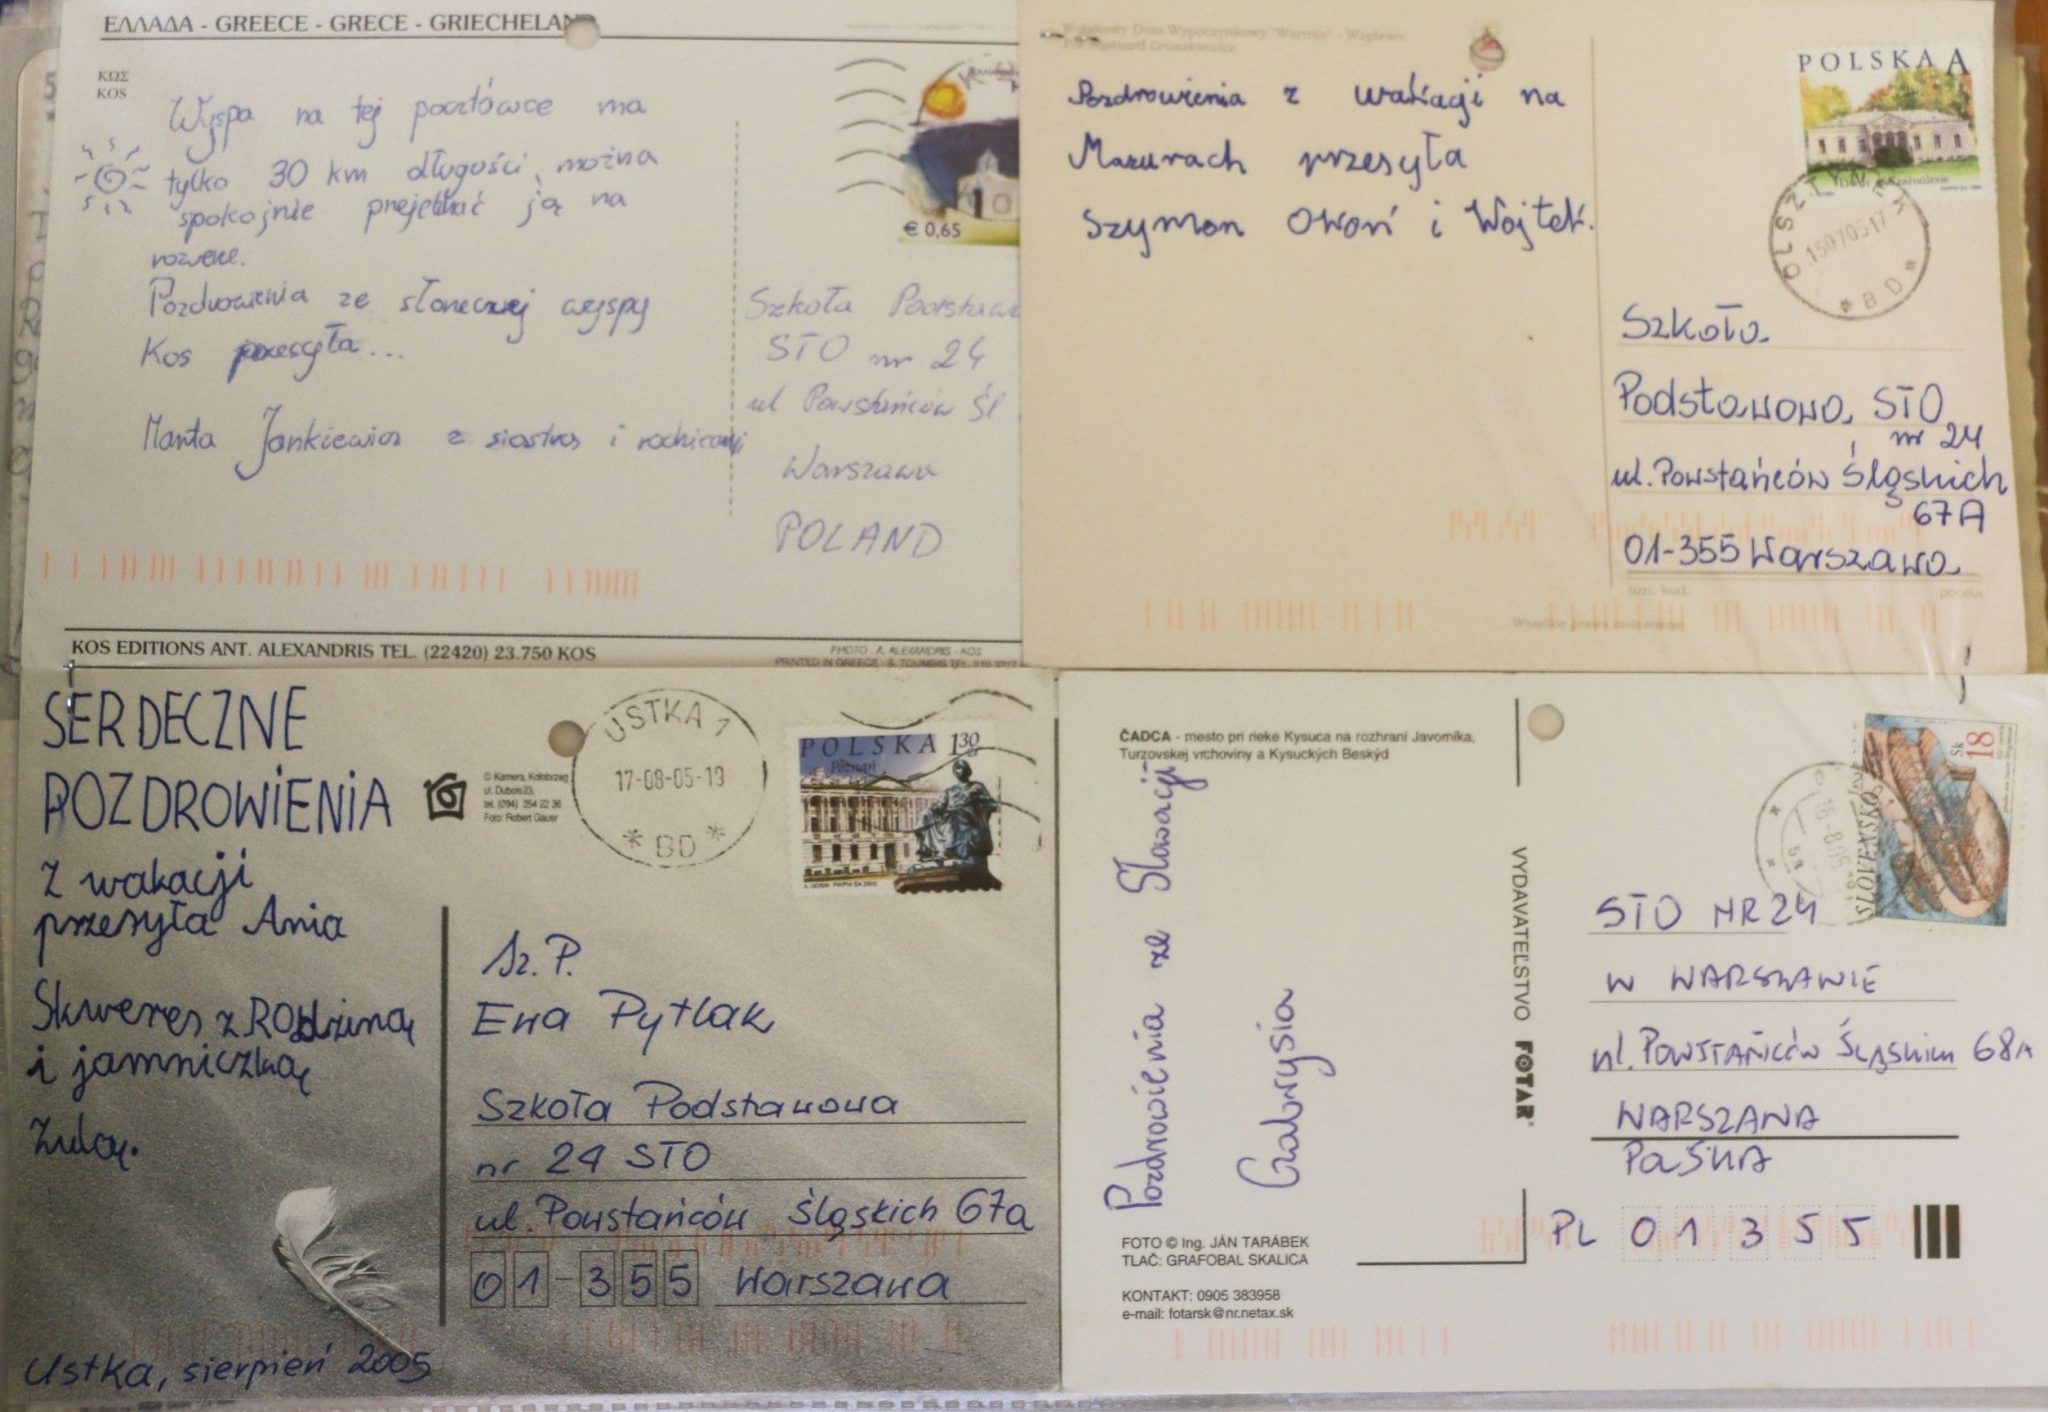 ΕΛΛΑΔΑ - GREECE - GRECE - GRIECHELAN
ΚΩΣ
KOS
Wyspa na tej pocztówce ma
tylko 30 km długości, można
spokojnie przejechać ją na
rowerze.
Pozdrowienia ze słonecznej wyspy
Kos przesyła...
Marta Jankiewicz z siostrą i rodzicami
€ 0,65
Szkoła Podstawo
STO nr 24
ul Powstańców Śl
Warszawa
POLAND
KOS EDITIONS ANT. ALEXANDRIS TEL. (22420) 23.750 KOS
PHOTO A. ALEXANDRIS - KOS
PRINTED IN GREECE - S. TOUMBIS TEL. 210
Wojskowy Dom Wypoczynkowy "Warmia" - Waplewo
Fot. Ryszard Gruszkiewicz
Pozdrowienia z wakacji na
Mazurach przesyła
Szymon Okoń i Wojtek.
POLSKA A
OLSZTYN
150705 17
* B D *
Szkoła
Podstawowa STO
nr 24
ul. Powstańców Śląskich
67A
01-355 Warszawa
ozn. kod. poczta
Wszelkie prawa zastrzeżone
SERDECZNE
POZDROWIENIA
z wakacji
przesyła Ania
Skweres z ROdziną
i jamniczką
Zulą.
Ustka, sierpień 2005
© Kamera, Kołobrzeg
ul. Dubois 23,
tel. (094) 354 22 36
Foto: Robert Gauer
USTKA 1
17-08-05-19
* BD *
POLSKA 1,30 zł
Poznań
Sz. P.
Ewa Pytlak
Szkoła Podstawowa
nr 24 STO
ul. Powstańców Śląskich 67a
01-355 Warszawa
ČADCA - mesto pri rieke Kysuca na rozhraní Javorníka,
Turzovskej vrchoviny a Kysuckých Beskýd
Pozdrowienia ze Słowacji
Gabrysia
VYDAVATEĽSTVO FOTAR
18 Sk
SLOVENSKO
STO NR 24
W WARSZAWIE
ul. POWSTAŃCÓW ŚLĄSKICH 68A
WARSZAWA
POLSKA
PL 01355
FOTO © Ing. JÁN TARÁBEK
TLAČ: GRAFOBAL SKALICA
KONTAKT: 0905 383958
e-mail: fotarsk@nr.netax.sk